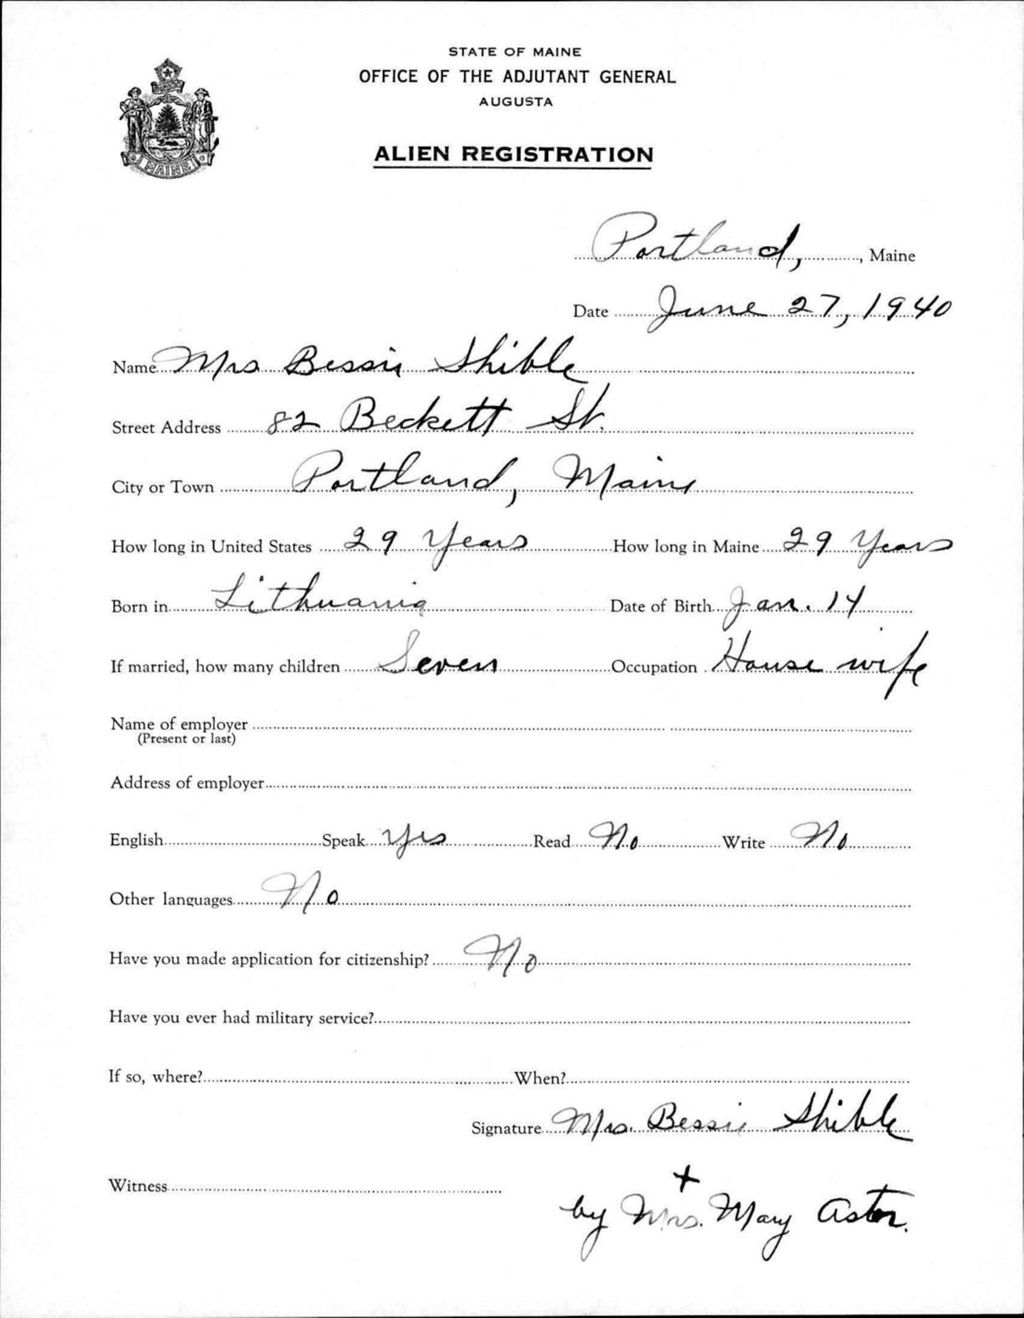 STATE OF MAINE
OFFICE OF THE ADJUTANT GENERAL
AUGUSTA
ALIEN REGISTRATION
MAINE
Portland, Maine
Date June 27, 1940
Name Mrs Bessie Shible
Street Address 82 Beckett St.
City or Town Portland, Maine
How long in United States 29 Years How long in Maine 29 Years
Born in Lithuania Date of Birth Jan. 14
If married, how many children Seven Occupation House wife
Name of employer
(Present or last)
Address of employer
English Speak Yes Read No Write No
Other languages No
Have you made application for citizenship? No
Have you ever had military service?
If so, where? When?
Signature Mrs. Bessie Shible
Witness
+
by Mrs. Mary Astor.